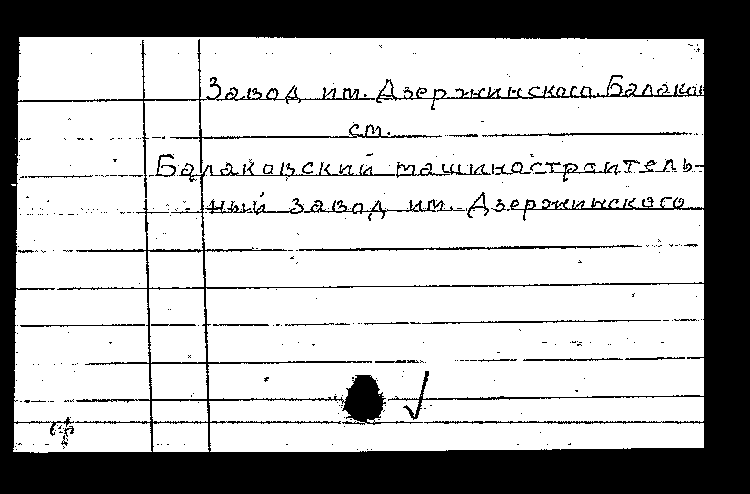 Завод им. Дзержинского. Балаков
ст.
Балаковский машиностроитель-
ный завод им. Дзержинского
ср